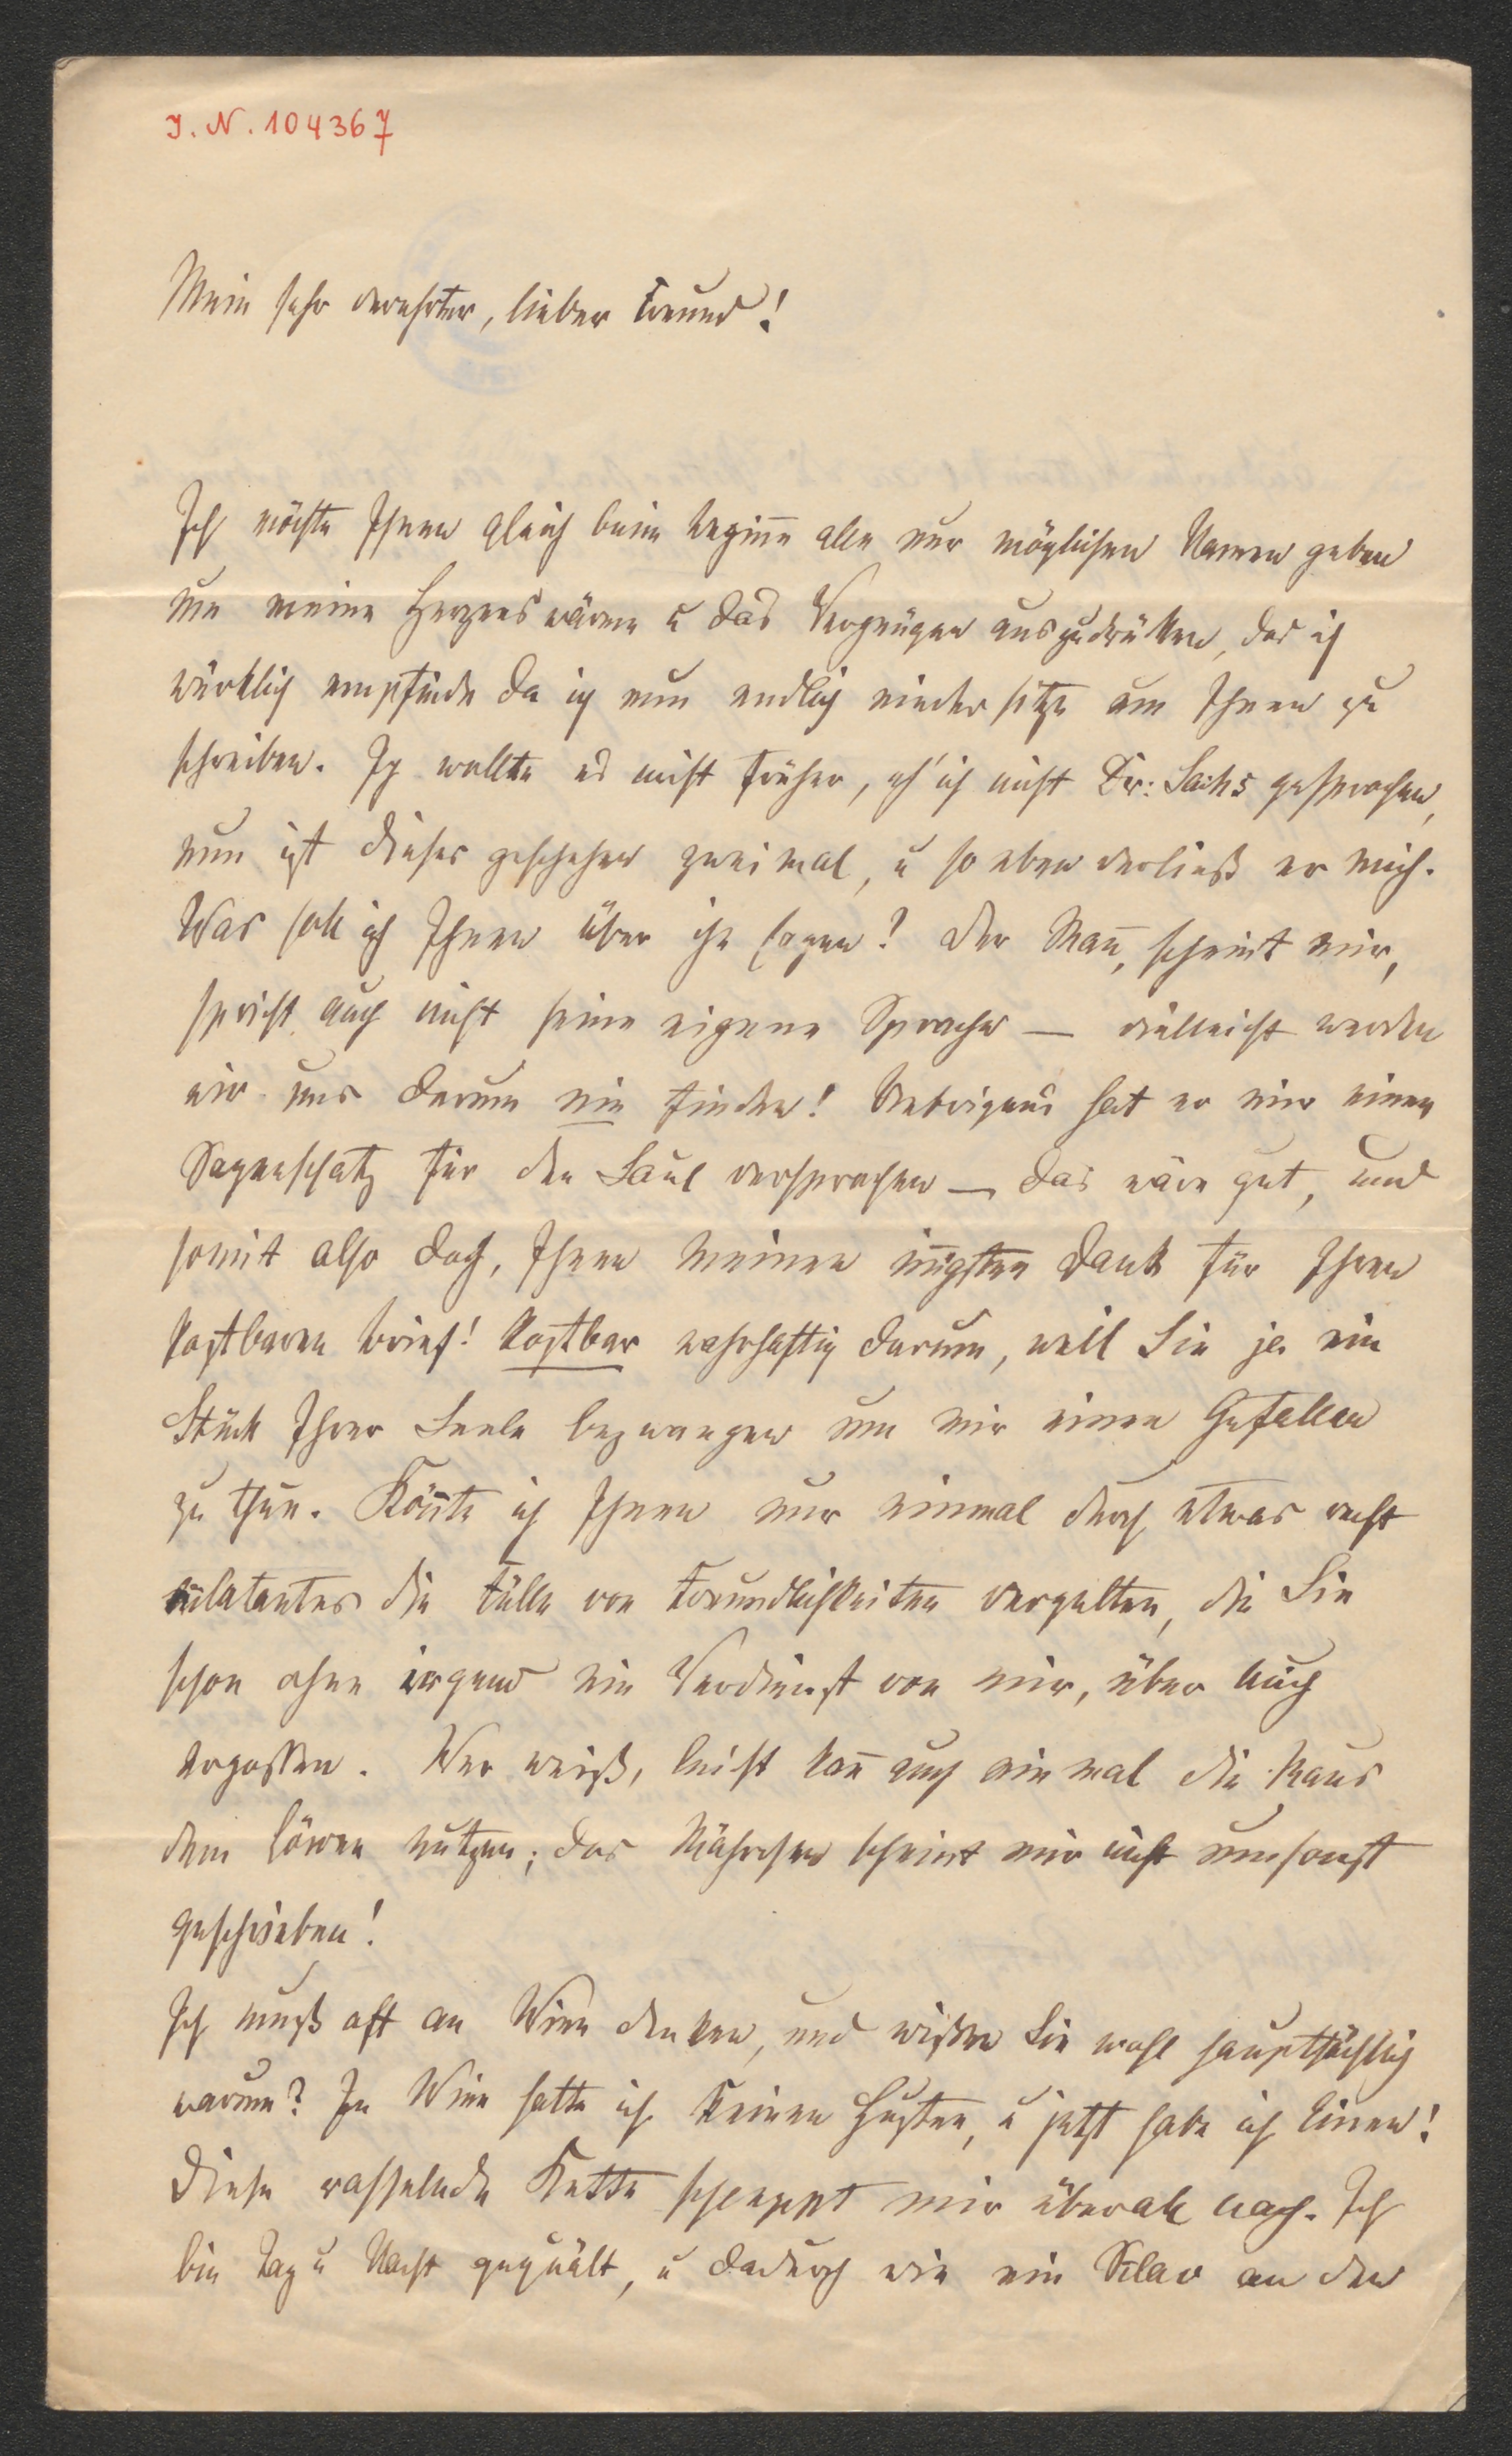 I. N. 104367
Mein sehr verehrter, lieber Freund!
Ich möchte Ihnen gleich beim beginne alle nur möglichen Namen geben
um meine Herzenswärme u das Vergnügen auszudrüken, das ich
würklich empfinde da ich nun endlich niedersitze um Ihnen zu
schreiben. Ich wollte es nicht früher, eh' ich nicht Dr: Sachs gesprochen,
nun ist dieses geschehen zweimal, u so eben verließ er mich.
Was soll ich Ihnen über ihn sagen? der Mañ, scheint mir,
spricht auch nicht seine eigene Sprache — vielleicht werden
wir uns darum nie finden! Uebrigens hat er mir einen
Sagenschatz für den Saul versprochen — das wäre gut, und
somit also doch, Ihnen meinen iñigsten Dank für Ihren
kostbaren brief! Kostbar wahrhaftig darum, weil Sie ja ein
Stük Ihrer Seele bezwangen um mir einen Gefallen
zu thun. Köñte ich Ihnen nur einmal durch etwas recht
eclatantes die Fülle von Freundlichkeiten vergelten, die Sie
schon ohne irgend ein Verdienst von mir, über mich
ergossen. Wer weiß, leicht kañ auch einmal die Maus
dem Löwen nutzen; das Mährchen scheint mir nicht umsonst
geschrieben!
Ich muß oft an Wien denken, und wissen Sie wohl hauptsächlich
warum? In Wien hatte ich keinen Husten, u jetzt habe ich Einen!
Diese rasselnde Kette schleppt mir überall nach. Ich
bin Tag u Nacht gequält, u dadurch wie ein Sclav an den